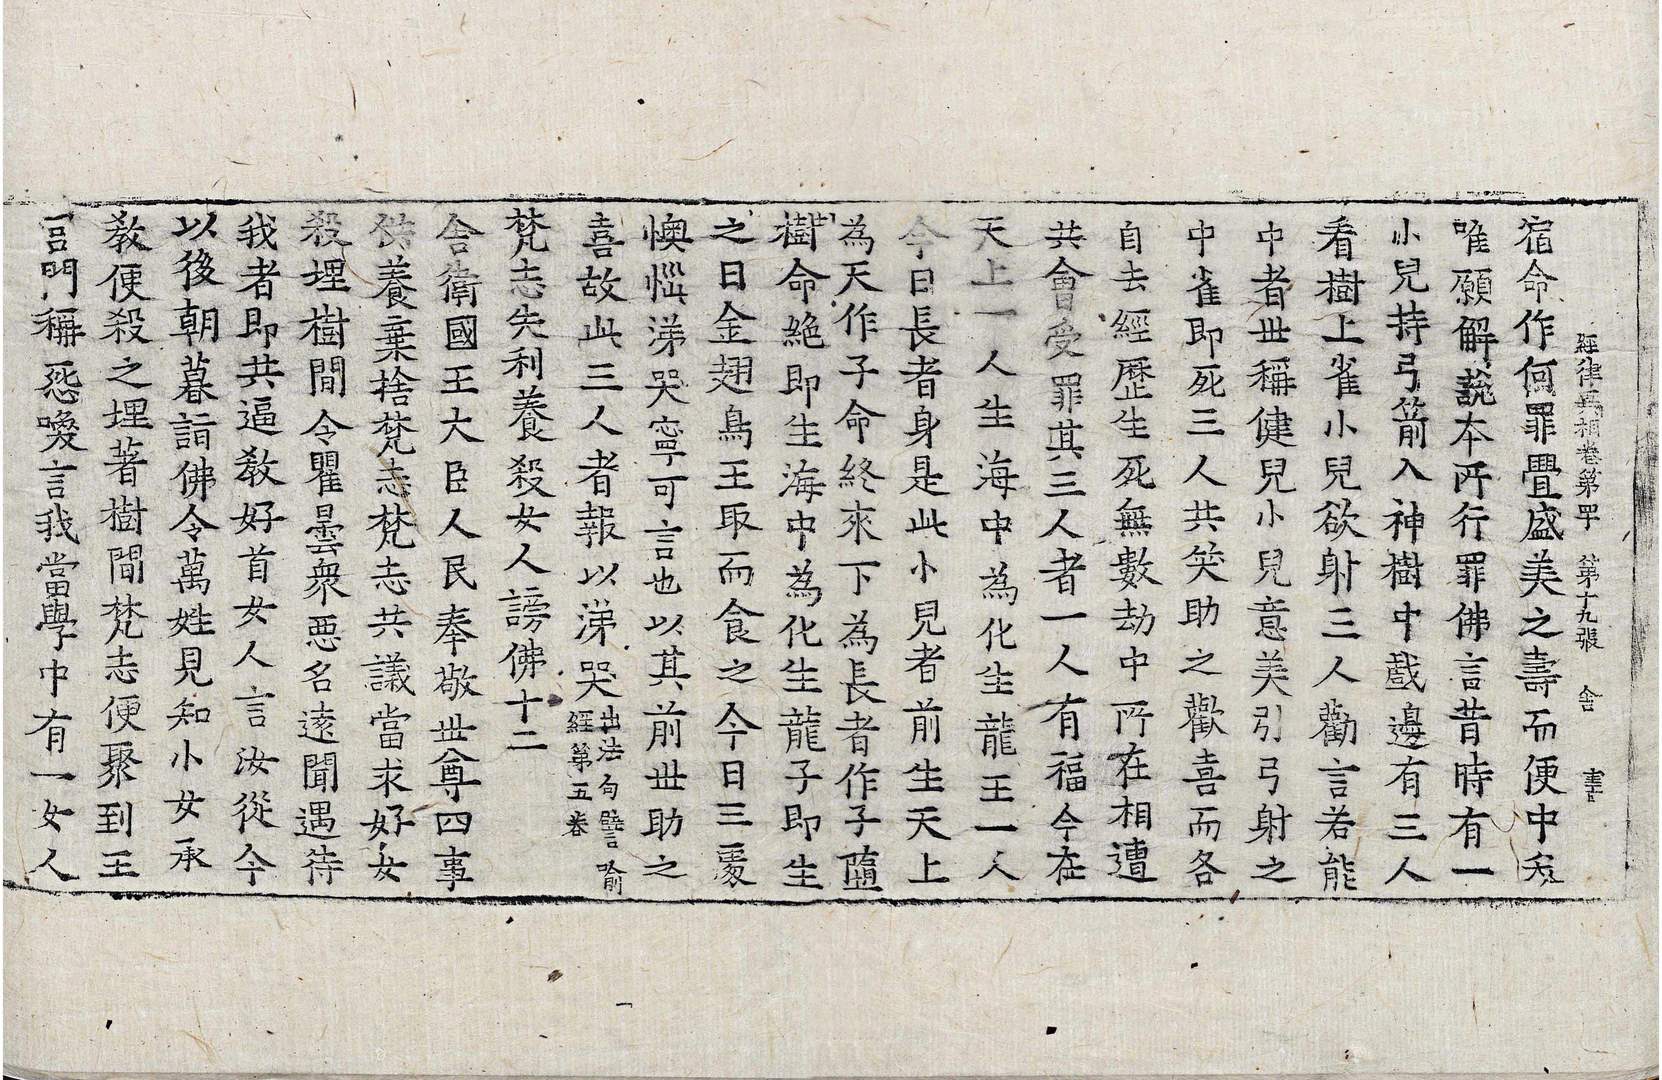 經律異相卷第四十　第十九張　舍
宿命作何罪疊盛美之壽而便中夭
唯願解說本所行罪佛言昔時有一
小兒持弓箭入神樹中戲邊有三人
看樹上雀小兒欲射三人勸言若能
中者世稱健兒小兒意美引弓射之
中雀即死三人共笑助之歡喜而各
自去經歷生死無數劫中所在相遭
共會受罪其三人者一人有福今在
天上一人生海中為化生龍王一人
今日長者身是此小兒者前生天上
為天作子命終來下為長者作子墮
樹命絶即生海中為化生龍子即生
之日金翅鳥王取而食之今日三處
懊惱涕哭寧可言也以其前世助之
喜故此三人者報以涕哭出法句譬喻經第五卷
梵志失利養殺女人謗佛十二
舍衛國王大臣人民奉敬世尊四事
供養棄捨梵志梵志共議當求好女
殺埋樹間令瞿曇衆惡名遠聞遇待
我者即共逼教好首女人言汝從今
以後朝暮詣佛令萬姓見知小女承
教便殺之埋著樹間梵志便聚到王
宮門稱怨喚言我當學中有一女人